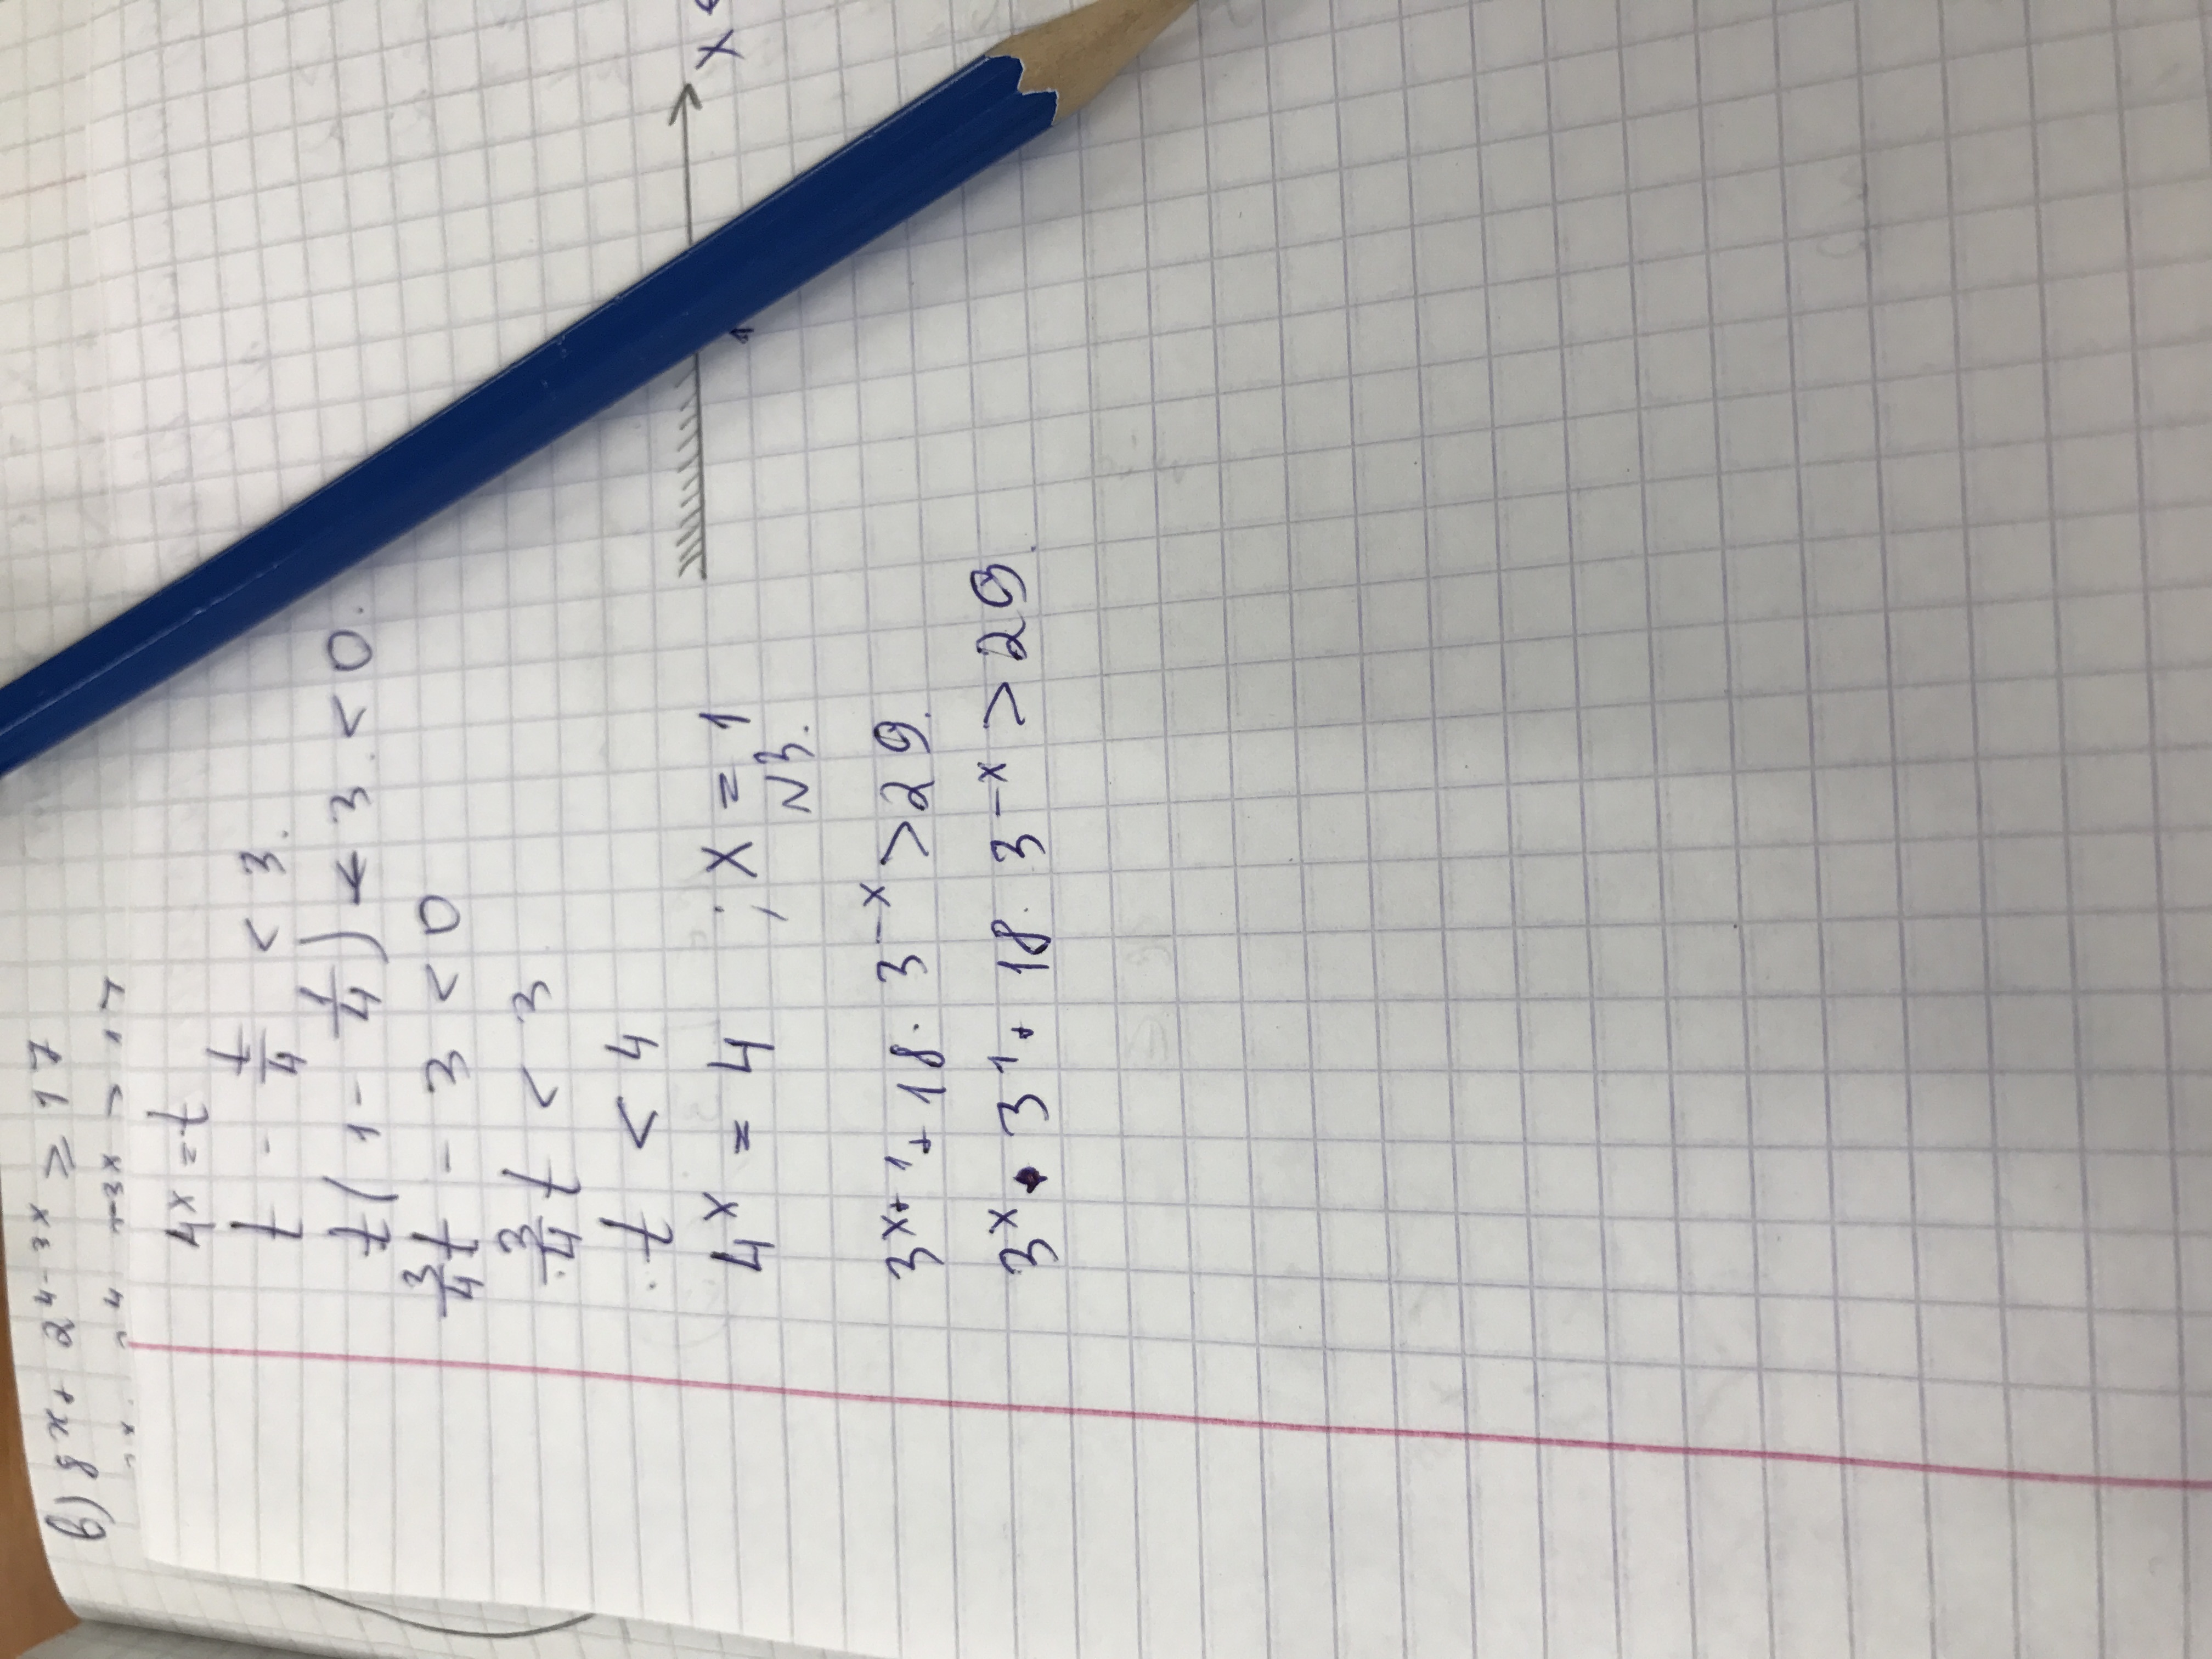 в) 8^x + 2^{4-3x} ≥ 17
4^x = t
t - t/4 < 3.
t(1 - 1/4) < 3. < 0.
3/4 t - 3 < 0
3/4 t < 3
t < 4
4^x = 4 ; x = 1 x
N3.
3^{x+1} + 18 · 3^{-x} > 29.
3^x · 3^1 + 18 · 3^{-x} > 29.